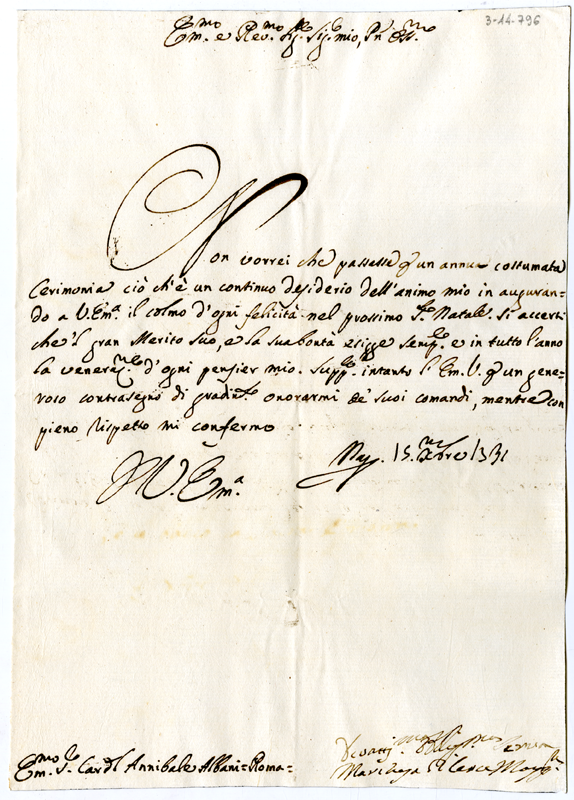 3-14-796
Em.mo e Rev.mo Sig. Sig. mio, P'n Oss.mo
Non vorrei che passasse p un annua costumata
Cerimonia ciò ch'è un continuo desiderio dell'animo mio in auguran=
do a V. Em.a il colmo d'ogni felicità nel prossimo S.to Natale. Si accerti
che'l gran Merito suo, e la sua bontà esigge semp.e e in tutto l'anno
la veneraz.ne d'ogni pensier mio. Supp.co intanto l'Em. V. p un gene=
roso contrasegno di gradim.to onorarmi de' suoi comandi, mentre con
pieno rispetto mi confermo
15. Xbre
V. Em.a
Em.mo S.r Card.l Annibale Albani = Roma =